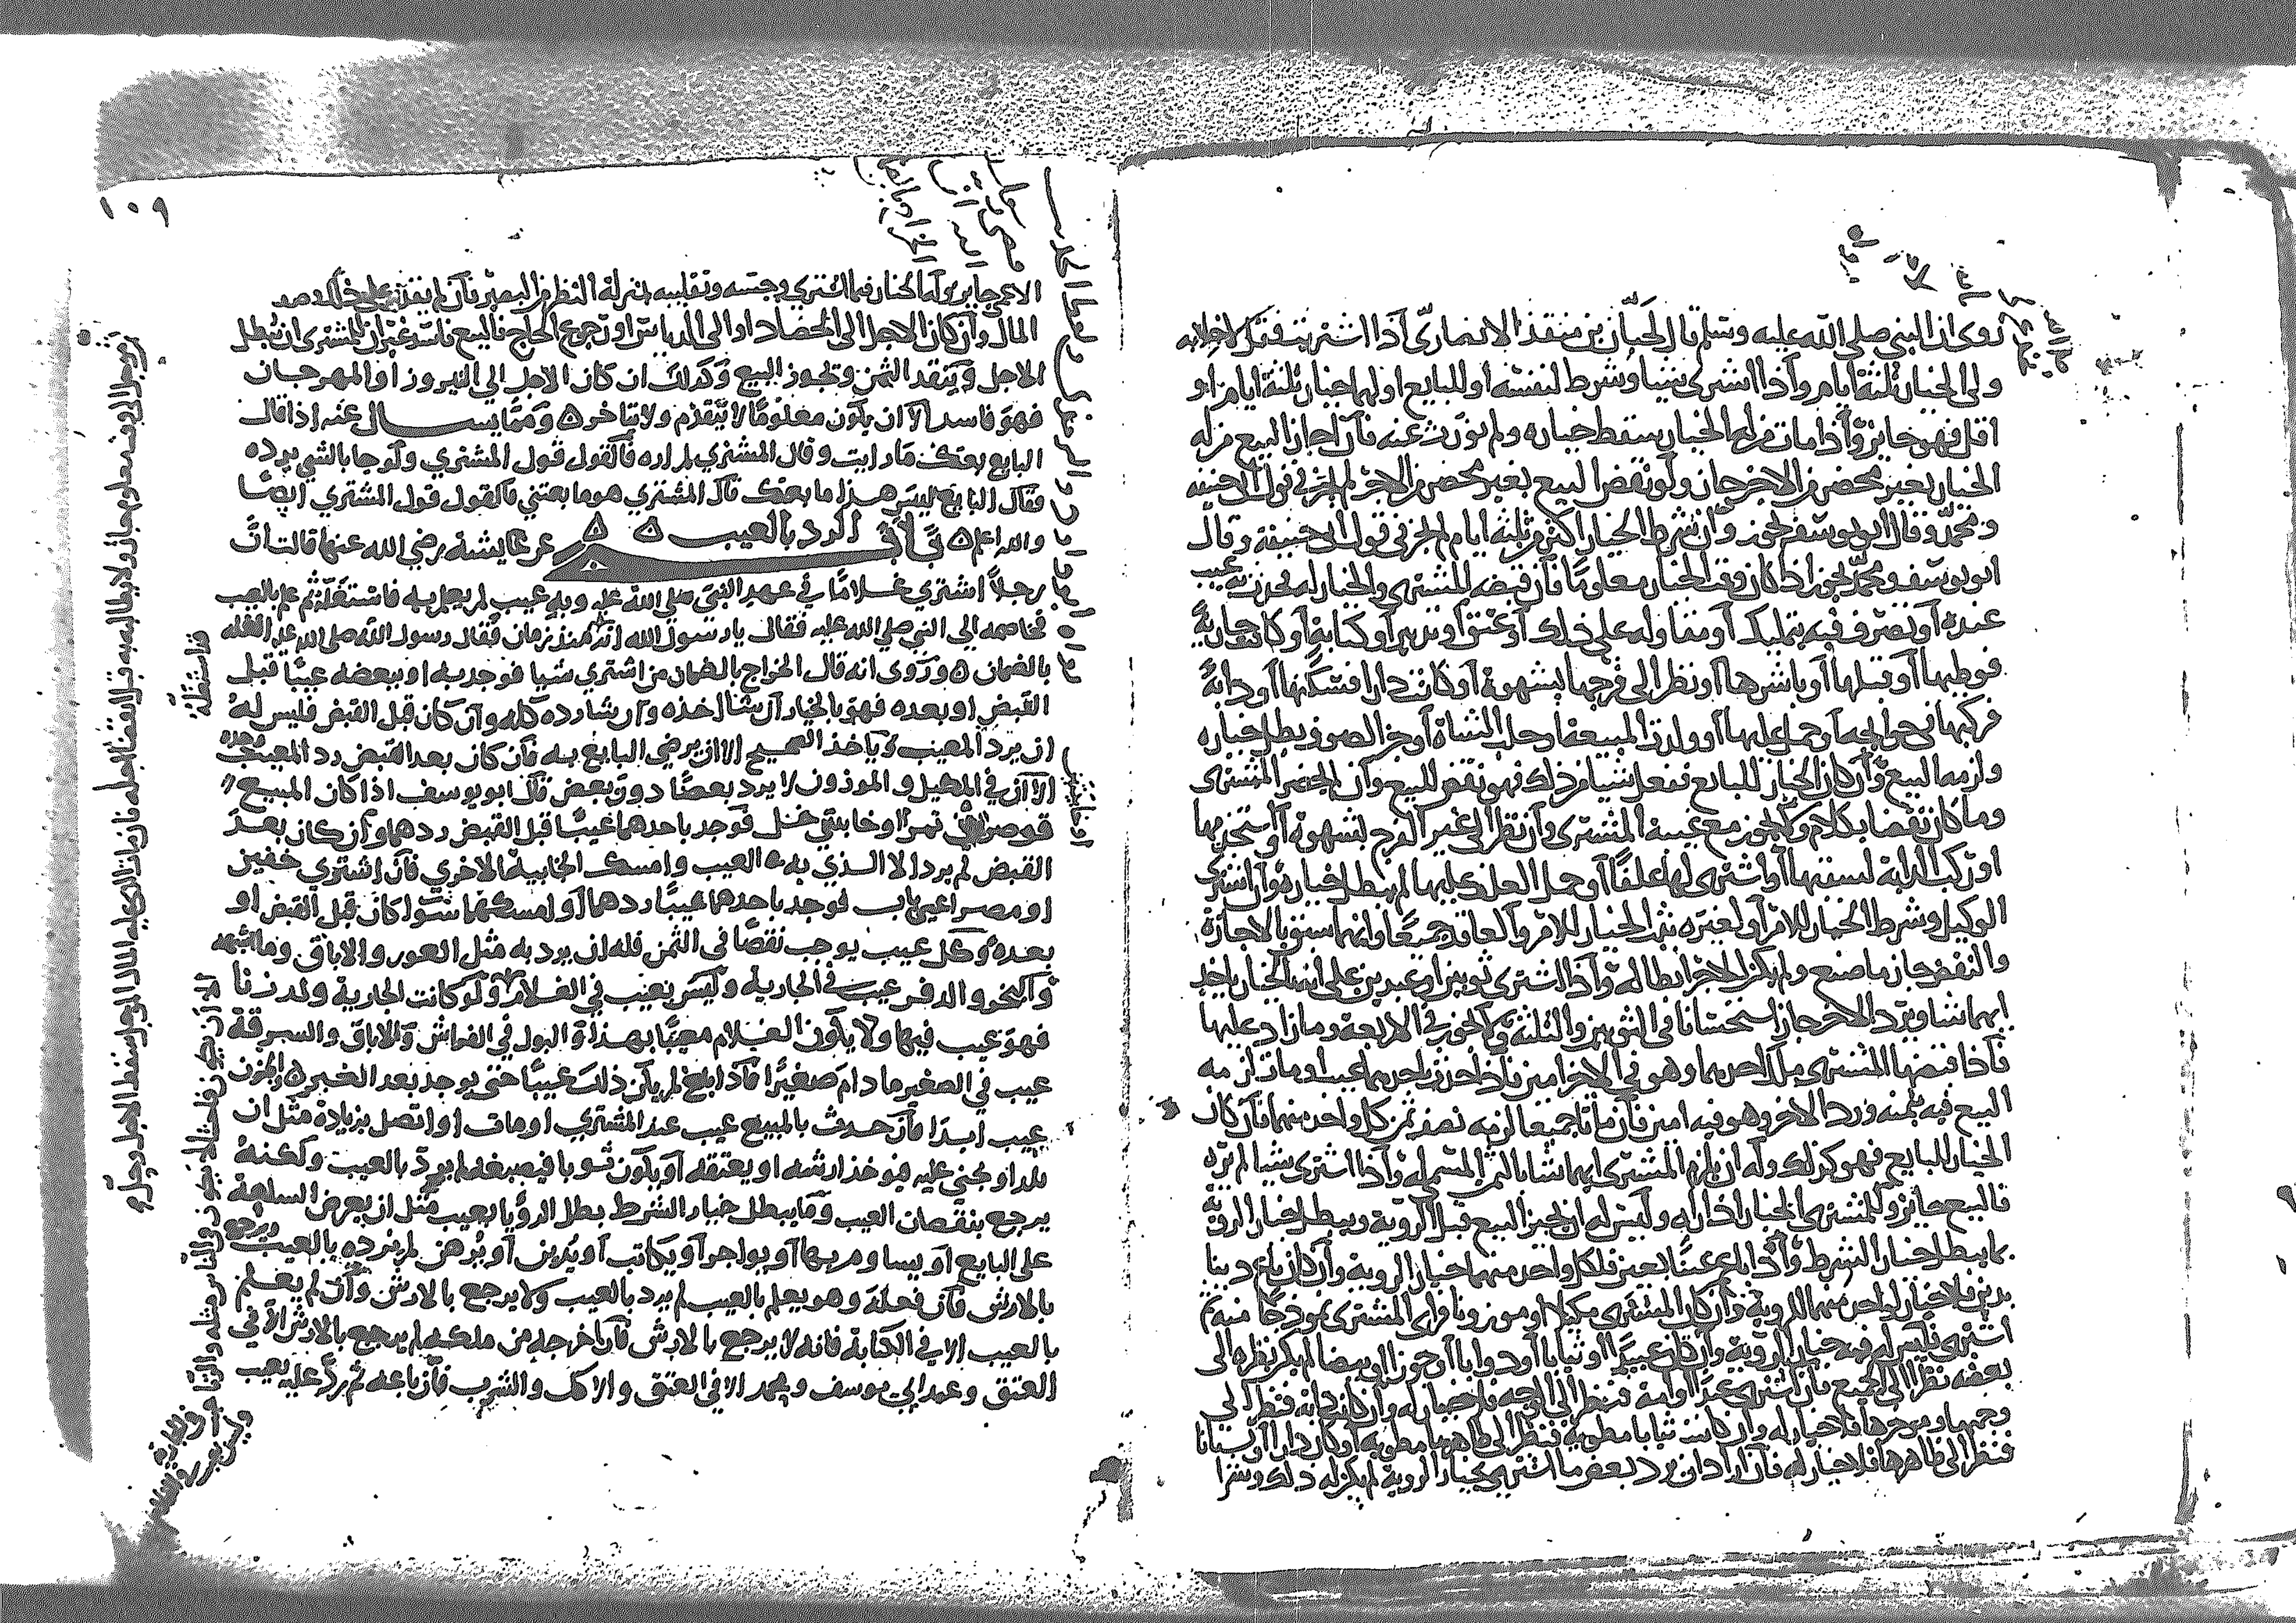 روى ان النبي صلى الله عليه وسلم قال لحبان بن منقذ الانصاري اذا اشتريت فقل لا خلابه
ولي الخيار ثلثة ايام واذا اشترى شيا وشرط لنفسه او للبايع او لهما خيار ثلثة ايام او
اقل فهو جايز واذا مات من له الخيار سقط خياره ولم يورث عنه فان اجاز البيع من له
الخيار بغير محضر من الاخر جاز ولو نقض البيع بغير محضر من الاخر لم يجز في قول ابي حنيفة
ومحمد وقال ابو يوسف يجوز وان شرط الخيار اكثر من ثلثة ايام لم يجز في قول ابي حنيفة وقال
ابو يوسف ومحمد يجوز اذا كان وقت الخيار معلوما فان قبضه المشتري والخيار له فحدث به عيب
عنده او تصرف فيه بتمليك او على ذلك او عتق او تدبير او كتابة او كانت جارية
فوطيها او قبلها او باشرها او نظر الى فرجها بشهوة او كانت دارا فسكنها او دابة
فركبها في حوايجه او حمل عليها او ولدت المبيعة او حلب الشاة او جز الصوف بطل خياره
ولزمه البيع وان كان الخيار للبايع ففعل شيا من ذلك فهو نقض للبيع وان لم يحضر المشتري
وما كان نقضا بكلام لم يجز مع غيبة المشتري وان نظر الى غير الفرج لشهوة او استخدمها
او ركب الدابة ليسقيها او اشترى لها علفا او حمل العلف عليها لم يبطل خياره وان اشترى
الوكيل وشرط الخيار للامر او لغيره ثبت الخيار للامر والعاقد جميعا وايهما سبق بالاجازة
والنقض جاز ما صنع ولم يكن للاخر ابطاله واذا اشترى ثوبين او عبدين على انه بالخيار ياخذ
ايهما شا ويرد الاخر جاز استحسانا في الثوبين والثلثة ولا يجوز في الاربعة وما زاد عليها
فاذا قبضها المشتري ملك احدهما وهو في الاخر امين فان حدث باحدهما عيب او مات لزمه
البيع فيه بثمنه ورد الاخر وهو فيه امين فان ماتا جميعا لزمه نصف ثمن كل واحد منهما فان كان
الخيار للبايع فهو كذلك وله ان يلزم المشتري ايهما شا بالثمن المسمى له واذا اشترى شيا لم يره
فالبيع جايز وللمشتري الخيار اذا راه وليس له ان يجيز البيع قبل الروية ويبطل خيار الروية
بما يبطل خيار الشرط واذا باع عينا بعين فلكل واحد منهما خيار الروية وان كان باع دينا
بدين فلا خيار لواحد منهما للروية وان كان المشترى مكيلا او موزونا فراى المشتري نموذجا منه ثم
اشترى فليس له فيه خيار الروية وان كان عبيدا او ثيابا او دوابا او جوزا او بيضا لم يكن نظره الى
بعضه نظرا الى الجميع فان اشترى عبدا او امة فنظر الى الوجه فلا خيار له وان كانت دابة فنظر الى
وجهها وموخرها فلا خيار له وان كانت ثيابا مطوية فنظر الى ظاهرها مطوية او كان دارا او بستانا
فنظر الى ظاهرها فلا خيار له فان اراد ان يرد بعض ما اشترى بخيار الروية لم يكن له ذلك وشرا
١٠٩
الاعمى جايز وله الخيار فيما اشترى وجسه وتقليبه بمنزلة النظر من البصير فان لم يقدر على
المال وان كان الاجل الى الحصاد او الى الدياس او رجوع الحاج فالبيع فاسد غير ان للمشتري ان يبطل
الاجل وينقد الثمن ويجوز البيع وكذلك ان كان الاجل الى النيروز او المهرجان
فهو فاسد الا ان يكون معلوما لا يتقدم ولا يتاخر ه ومما يسال عنه اذا قال
البايع بعتك ما رايت وقال المشتري لم اره فالقول قول المشتري ولو جا بالشي يرده
فقال البايع ليس هذا ما بعتك قال المشتري هو ما بعتني فالقول قول المشتري ايضا
والله اعلم ه باب في الرد بالعيب ه ه عن عايشة رضي الله عنها قالت ان
رجلا اشترى غلاما في عهد النبي صلى الله عليه وبه عيب لم يعلم به فاستغله ثم علم بالعيب
فخاصمه الى النبي صلى الله عليه فقال يا رسول الله انه منذ زمان فقال رسول الله صلى الله عليه الغله
بالضمان ه وروى انه قال الخراج بالضمان من اشترى شيا فوجد به او ببعضه عيبا قبل
القبض او بعده فهو بالخيار ان شا اخذه وان شا رده كله وان كان قبل القبض فليس له
ان يرد المعيب وياخذ الصحيح الا ان يرضى البايع به فان كان بعد القبض رد المعيب وحده
الا ان في المكيل والموزون لا يرد بعضا دون بعض قال ابو يوسف اذا كان المبيع
قوصرتي تمر او خابيتي خل فوجد باحدهما عيبا قبل القبض ردهما وان كان بعد
القبض لم يرد الا الذي به العيب وامسك الخابية الاخرى فان اشترى خفين
او مصراعي باب فوجد باحدهما عيبا ردهما او امسكهما سوا كان قبل القبض او
بعده وكل عيب يوجب نقصا في الثمن فله ان يرد به مثل العور والاباق وما اشبهه
والبخر والدفر عيب في الجارية وليس بعيب في الغلام ولو كانت الجارية ولد زنا
فهو عيب فيها ولا يكون الغلام معيبا بهذا والبول في الفراش والاباق والسرقة
عيب في الصغير ما دام صغيرا فاذا بلغ لم يكن ذلك عيبا حتى يوجد بعد الكبر ه والجنون
عيب ابدا فان حدث بالمبيع عيب عند المشتري او مات او اتصل بزيادة مثل ان
يلد او يجني عليه فيوخذ ارشه او يعتقه او يكون ثوبا فيصبغه لم يرد بالعيب ولكنه
يرجع بنقصان العيب وما يبطل خيار الشرط يبطل الرد بالعيب مثل ان يعرض السلعة
على البايع او يساوم بها او يواجر او يكاتب او يدبر او يرهن لم يرده بالعيب ويرجع
بالارش فان فعله وهو يعلم بالعيب لم يرد بالعيب ولا يرجع بالارش وان لم يعلم
بالعيب الا في الكتابة فانه لا يرجع بالارش فان اخرجه من ملكه لم يرجع بالارش الا في
العتق وعند ابي يوسف ومحمد الا في العتق والاكل والشرب فان باعه ثم رد عليه بعيب
فاستغله